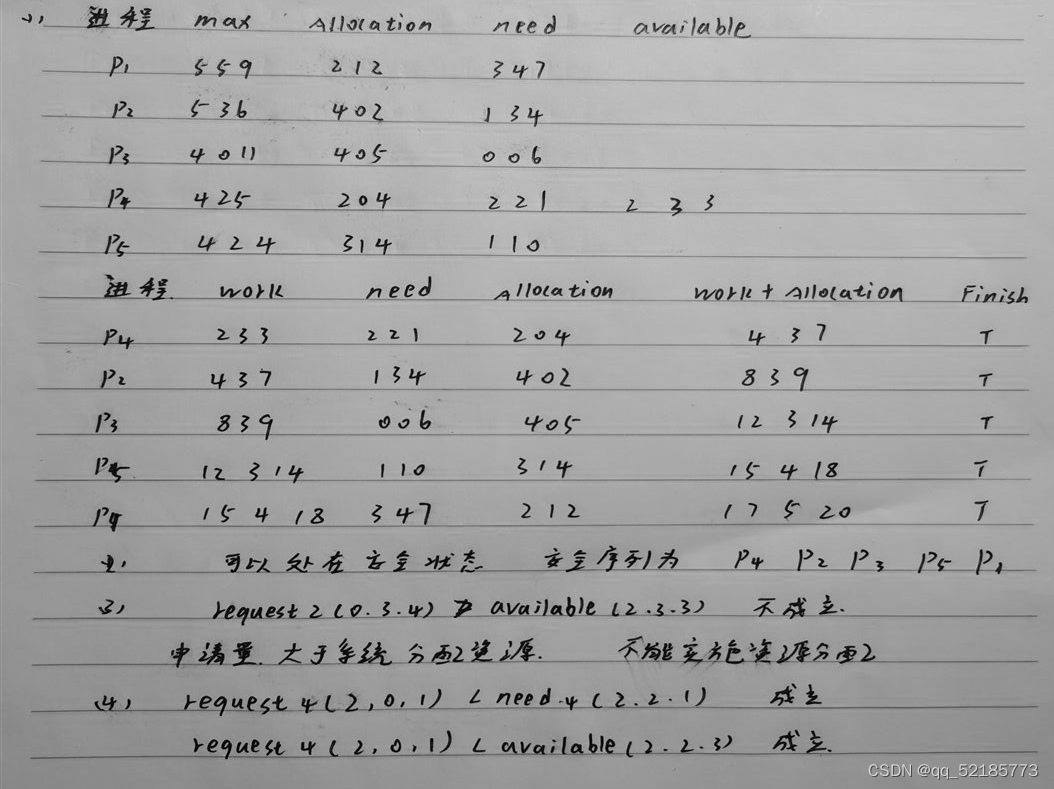 (1) 进程 max Allocation need available
P1 559 212 347
P2 536 402 134
P3 4011 405 006
P4 425 204 221 2 3 3
P5 424 314 110
进程. work need Allocation work + Allocation Finish
P4 233 221 204 4 3 7 T
P2 437 134 402 839 T
P3 839 006 405 12 3 14 T
P5 12 3 14 110 314 15 4 18 T
P1 15 4 18 347 212 17 5 20 T
可以处在安全状态 安全序列为 P4 P2 P3 P5 P1
request 2 (0.3.4) > available (2.3.3) 不成立.
申请量.大于系统分配资源. 不能实施资源分配
(4) request 4 (2,0,1) < need.4 (2.2.1) 成立
request 4 (2,0,1) < available (2.2.3) 成立.
CSDN @qq_52185773